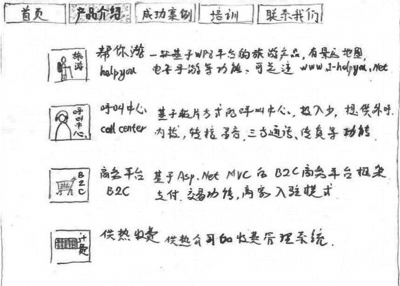 首页 产品介绍 成功案例 培训 联系我们
旅游
帮你游 一款基于WP8平台的旅游产品,有景点地图,
helpyou 电子导游等功能,可走进 www.z-helpyou.net
呼叫中心
呼叫中心 基于板卡方式的呼叫中心,投入少,提供外呼
call center 内拨,转接 录音,三方通话,传真等功能
B2C
商务平台 基于Asp.Net MVC 的 B2C商务平台框架
B2C 支付,交易功能,商家入驻模式
计费
供热收费 供热公司加收费管理系统.